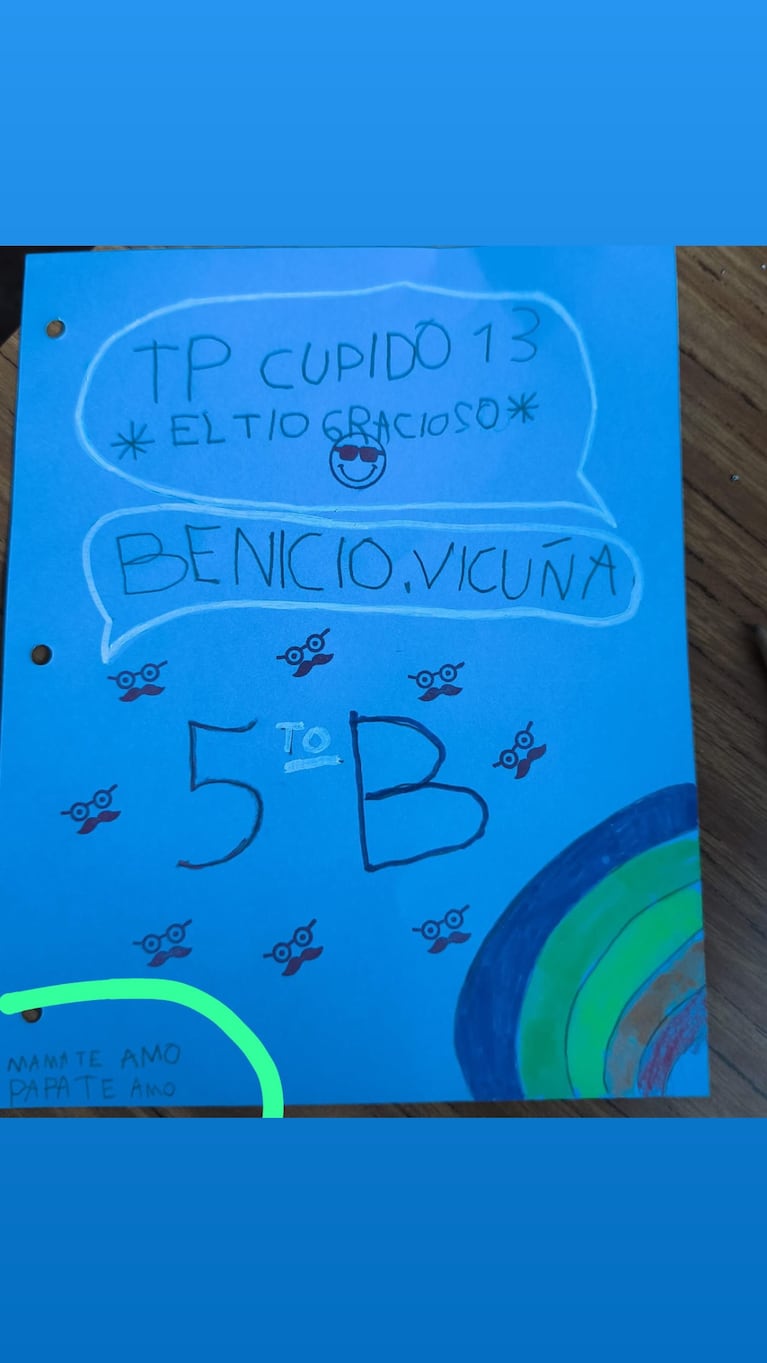 TP CUPIDO 13
* EL TIO GRACIOSO *
BENICIO.VICUÑA
5TO B
MAMA TE AMO
PAPA TE AMO